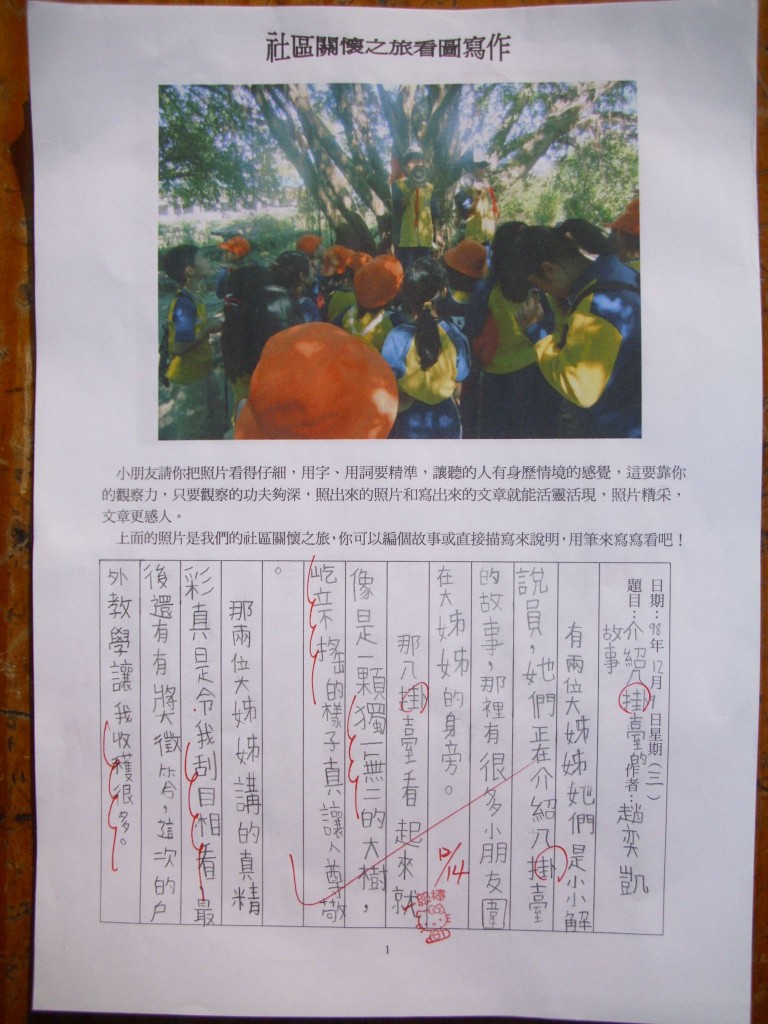 社區關懷之旅看圖寫作
小朋友請你把照片看得仔細，用字、用詞要精準，讓聽的人有身歷情境的感覺，這要靠你
的觀察力，只要觀察的功夫夠深，照出來的照片和寫出來的文章就能活靈活現，照片精采，
文章更感人。
上面的照片是我們的社區關懷之旅，你可以編個故事或直接描寫來說明，用筆來寫寫看吧！
日期：98年12月9日星期（三）
題目：介紹八掛臺的故事 作者：趙奕凱
有兩位大姊姊她們是小小解
說員，她們正在介紹八掛臺
的故事，那裡有很多小朋友圍
在大姊姊的身旁。
那八掛臺看起來就
像是一顆獨一無二的大樹，
屹立不搖的樣子真讓人尊敬
。
那兩位大姊姊講的真精
彩真是令我刮目相看，最
後還有有獎徵答，這次的戶
外教學讓我收穫很多。
卦
卦
12/14
棒
1